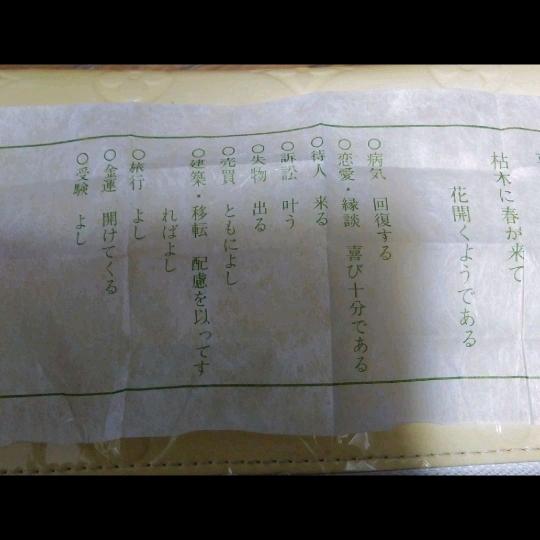 枯木に春が来て
花開くようである
○病気 回復する
○恋愛・縁談 喜び十分である
○待人 来る
○訴訟 叶う
○失物 出る
○売買 ともによし
○建築・移転 配慮を以ってす
ればよし
○旅行 よし
○金運 開けてくる
○受験 よし